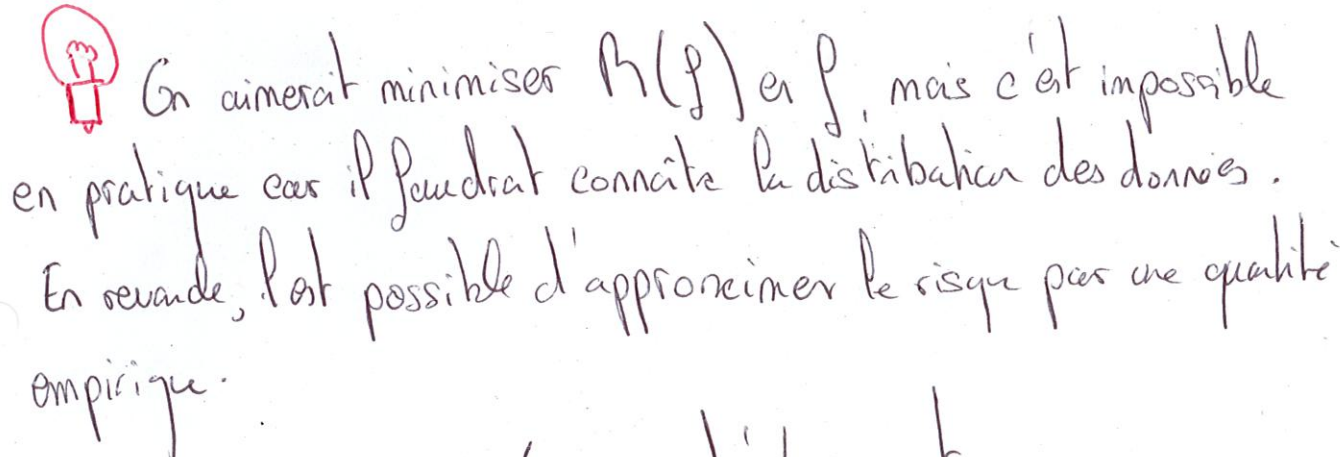 On aimerait minimiser R(f) en f, mais c'est impossible
en pratique car il faudrait connaître la distribution des données.
En revanche, il est possible d'approximer le risque par une quantité
empirique.